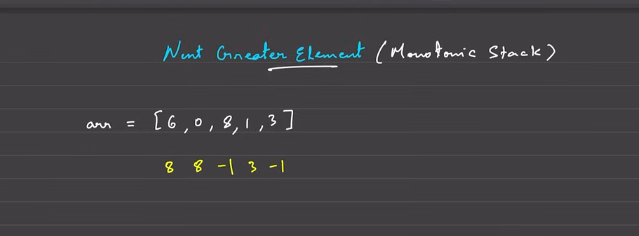 Next Greater Element (Monotonic Stack)
arr = [6, 0, 8, 1, 3]
8 8 -1 3 -1